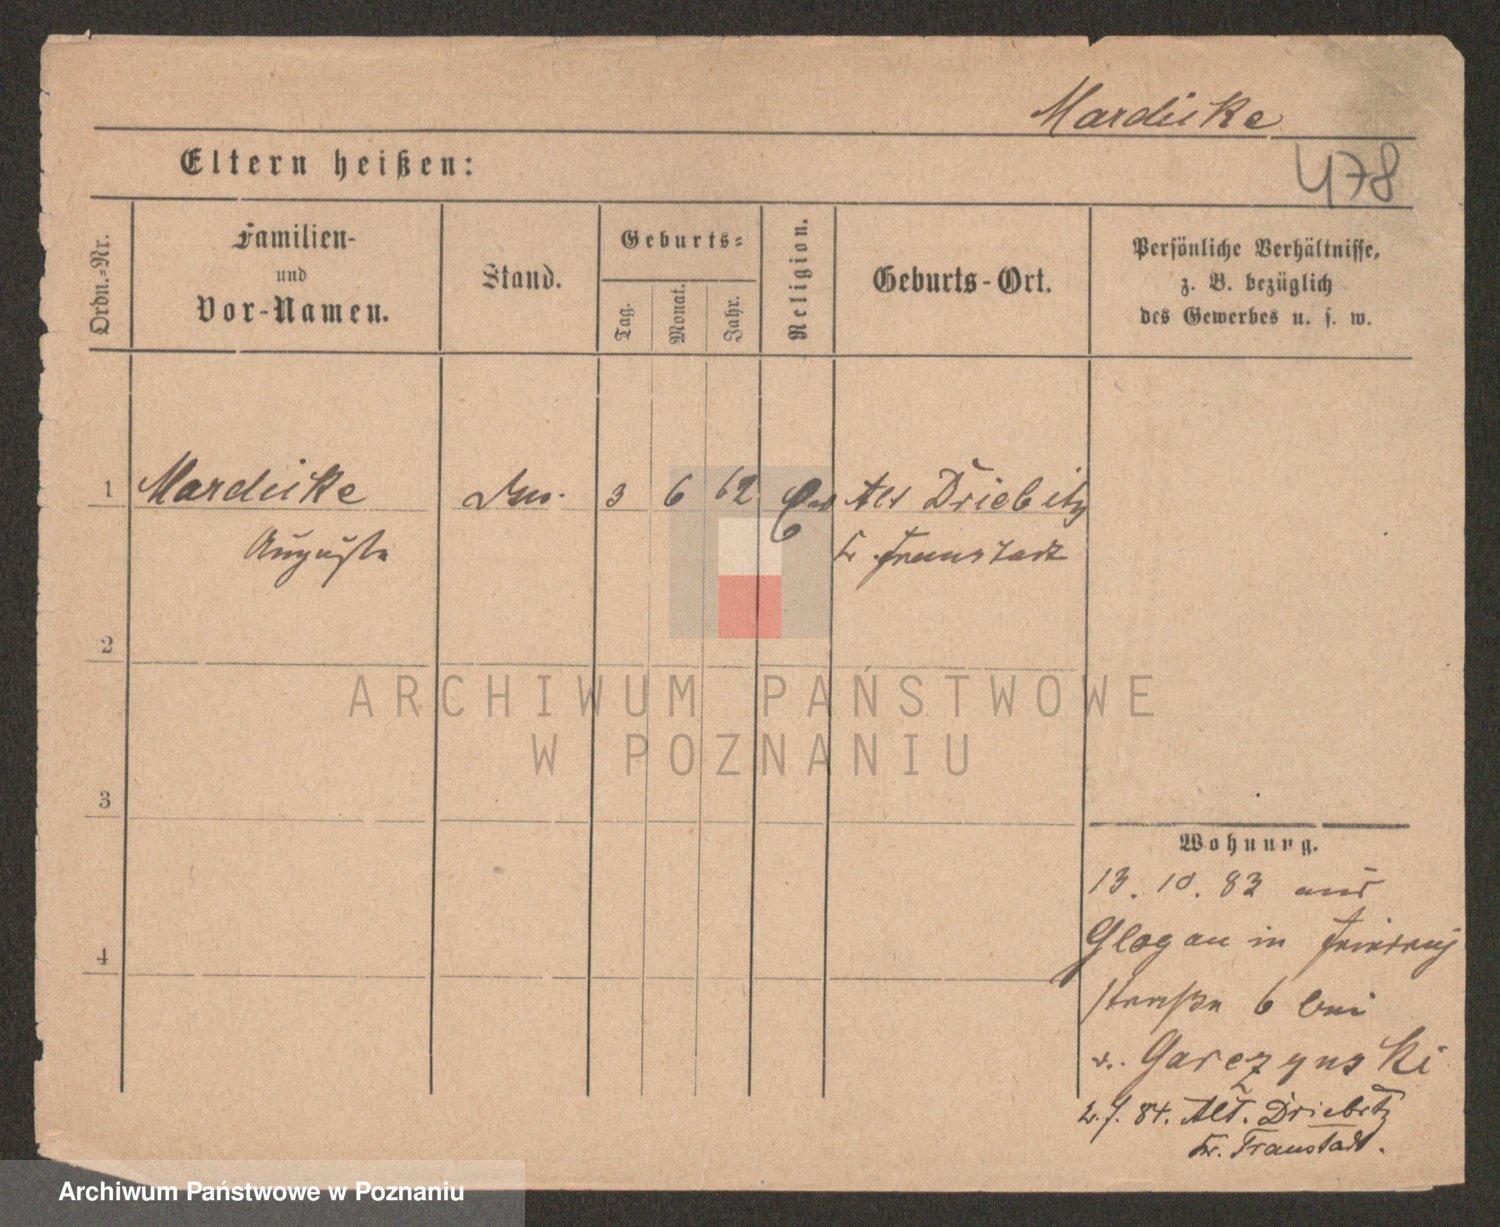 Mardicke
478
Eltern heißen:
Ordn.-Nr.
Familien-
und
Vor-Namen.
Stand.
Geburts-
Tag.
Monat.
Jahr.
Religion.
Geburts-Ort.
Persönliche Verhältnisse,
z. B. bezüglich
des Gewerbes u. s. w.
1 Mardicke 3 6 62 Alt Driebitz
Auguste Kr. Fraustadt
2
3
4
Wohnung.
13. 10. 83 aus
Glogau in Friedrich
straße 6 bei
v. Garczynski
84. Alt. Driebitz
Kr. Fraustadt.
ARCHIWUM PAŃSTWOWE
W POZNANIU
Archiwum Państwowe w Poznaniu